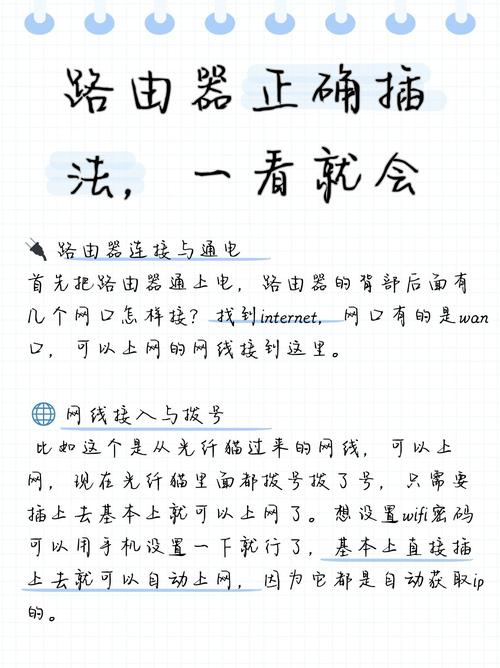 路由器正确插
法，一看就会
路由器连接与通电
首先把路由器通上电，路由器的背部后面有
几个网口怎样接？找到internet，网口有的是wan
口，可以上网的网线接到这里。
网线接入与拨号
比如这个是从光纤猫过来的网线，可以上
网，现在光纤猫里面都拨号拨了号，只需要
插上去基本上就可以上网了。想设置wifi密码
可以用手机设置一下就行了，基本上直接插
上去就可以自动上网，因为它都是自动获取ip
的。